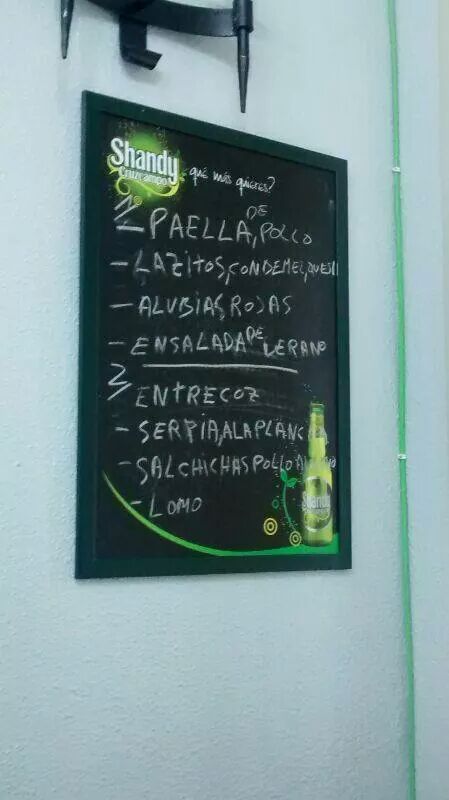 Shandy
Cruzcampo
¿qué más quieres?
DE
- PAELLA, POLLO
- LAZITOS, CON DEMEL, QUES
- ALUBIAS, ROJAS
- ENSALADA DE VERANO
ENTRECOZ
- SERPIA, A LA PLANCHA
- SALCHICHAS POLLO
- LOMO
Shandy